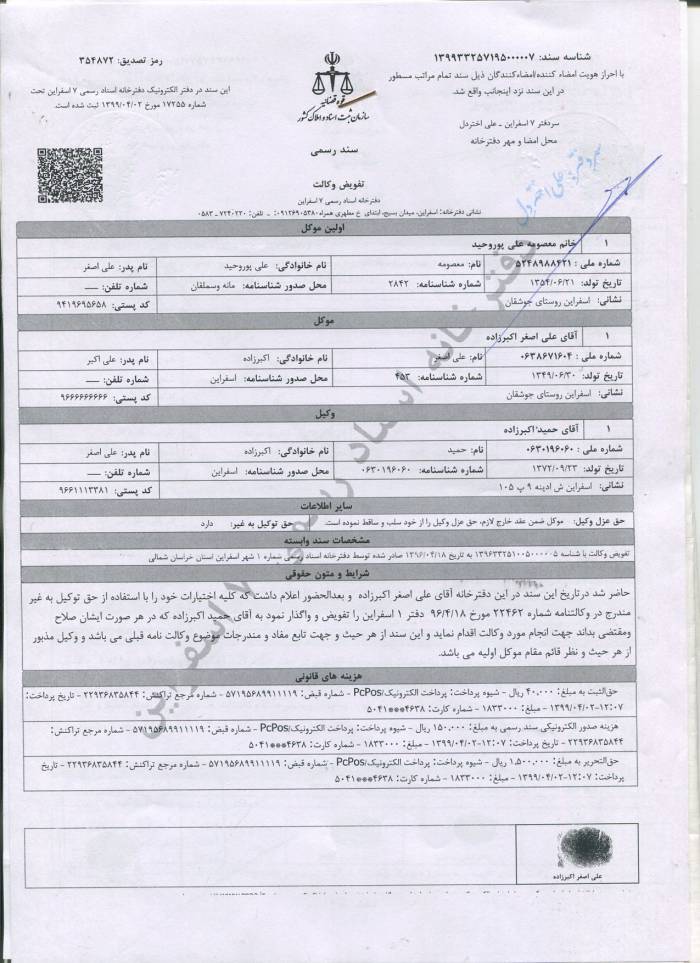 شناسه سند: ۱۳۹۹۳۳۲۵۷۱۹۵۰۰۰۰۰۷
با احراز هویت امضاء کننده/امضاءکنندگان ذیل سند تمام مراتب مسطور
در این سند نزد اینجانب واقع شد.
سردفتر ۷ اسفراین ـ علی اختردل
محل امضا و مهر دفترخانه
قوه قضائیه
سازمان ثبت اسناد و املاک کشور
سند رسمی
تفویض وکالت
دفترخانه اسناد رسمی ۷ اسفراین
رمز تصدیق: ۳۵۴۸۷۲
این سند در دفتر الکترونیک دفترخانه اسناد رسمی ۷ اسفراین تحت
شماره ۱۷۲۵۵ مورخ ۱۳۹۹/۰۴/۰۲ ثبت شده است.
نشانی دفترخانه: اسفراین، میدان بسیج، ابتدای خ مطهری همراه۰۹۱۲۶۹۰۵۳۸۰: ـ تلفن: ۷۲۴۰۲۲۰ـ۰۵۸۳
اولین موکل
۱ خانم معصومه علی پوروحید
شماره ملی : ۵۲۴۸۹۸۸۶۲۱ نام: معصومه نام خانوادگی: علی پوروحید نام پدر: علی اصغر
تاریخ تولد: ۱۳۵۴/۰۶/۲۱ شماره شناسنامه: ۲۸۴۲ محل صدور شناسنامه: مانه وسملقان شماره تلفن: ـــ
نشانی: اسفراین روستای جوشقان کد پستی: ۹۴۱۹۶۹۵۶۵۸
موکل
۱ آقای علی اصغر اکبرزاده
شماره ملی : ۰۶۳۸۶۷۱۶۰۴ نام: علی اصغر نام خانوادگی: اکبرزاده نام پدر: علی اکبر
تاریخ تولد: ۱۳۴۹/۰۶/۳۰ شماره شناسنامه: ۴۵۳ محل صدور شناسنامه: اسفراین شماره تلفن: ـــ
نشانی: اسفراین روستای جوشقان کد پستی: ۹۶۶۶۶۶۶۶۶۶
وکیل
۱ آقای حمید اکبرزاده
شماره ملی : ۰۶۳۰۱۹۶۰۶۰ نام: حمید نام خانوادگی: اکبرزاده نام پدر: علی اصغر
تاریخ تولد: ۱۳۷۲/۰۹/۲۳ شماره شناسنامه: ۰۶۳۰۱۹۶۰۶۰ محل صدور شناسنامه: اسفراین شماره تلفن: ـــ
نشانی: اسفراین ش ادینه ۹ پ ۱۰۵ کد پستی: ۹۶۶۱۱۱۳۳۸۱
سایر اطلاعات
حق عزل وکیل: موکل ضمن عقد خارج لازم، حق عزل وکیل را از خود سلب و ساقط نموده است. حق توکیل به غیر: دارد
مشخصات سند وابسته
تفویض وکالت با شناسه ۱۳۹۶۳۳۲۵۱۰۰۵۰۰۰۰۰۵ به تاریخ ۱۳۹۶/۰۴/۱۸ صادر شده توسط دفترخانه اسناد رسمی شماره ۱ شهر اسفراین استان خراسان شمالی
شرایط و متون حقوقی
حاضر شد درتاریخ این سند در این دفترخانه آقای علی اصغر اکبرزاده و بعدالحضور اعلام داشت که کلیه اختیارات خود را با استفاده از حق توکیل به غیر
مندرج در وکالتنامه شماره ۲۲۴۶۲ مورخ ۹۶/۴/۱۸ دفتر ۱ اسفراین را تفویض و واگذار نمود به آقای حمید اکبرزاده که در هر صورت ایشان صلاح
ومقتضی بداند جهت انجام مورد وکالت اقدام نماید و این سند از هر حیث و جهت تابع مفاد و مندرجات موضوع وکالت نامه قبلی می باشد و وکیل مذبور
از هر حیث و نظر قائم مقام موکل اولیه می باشد.
هزینه های قانونی
حق‌الثبت به مبلغ: ۴۰,۰۰۰ ریال - شیوه پرداخت: پرداخت الکترونیک/PcPos - شماره قبض: ۵۷۱۹۵۶۸۹۹۱۱۱۱۹ - شماره مرجع تراکنش: ۲۲۹۳۶۸۳۵۸۴۴ - تاریخ پرداخت:
۱۲:۰۷-۱۳۹۹/۰۴/۰۲ - مبلغ: ۱۸۳۳۰۰۰ - شماره کارت: ۵۰۴۱***۴۶۳۸
هزینه صدور الکترونیکی سند رسمی به مبلغ: ۱۵۰,۰۰۰ ریال - شیوه پرداخت: پرداخت الکترونیک/PcPos - شماره قبض: ۵۷۱۹۵۶۸۹۹۱۱۱۱۹ - شماره مرجع تراکنش:
۲۲۹۳۶۸۳۵۸۴۴ - تاریخ پرداخت: ۱۲:۰۷-۱۳۹۹/۰۴/۰۲ - مبلغ: ۱۸۳۳۰۰۰ - شماره کارت: ۵۰۴۱***۴۶۳۸
حق‌التحریر به مبلغ: ۱,۵۰۰,۰۰۰ ریال - شیوه پرداخت: پرداخت الکترونیک/PcPos - شماره قبض: ۵۷۱۹۵۶۸۹۹۱۱۱۱۹ - شماره مرجع تراکنش: ۲۲۹۳۶۸۳۵۸۴۴ - تاریخ
پرداخت: ۱۲:۰۷-۱۳۹۹/۰۴/۰۲ - مبلغ: ۱۸۳۳۰۰۰ - شماره کارت: ۵۰۴۱***۴۶۳۸
علی اصغر اکبرزاده
دفتر خانه اسناد رسمی ۷ اسفراین
سردفتر علی اختردل